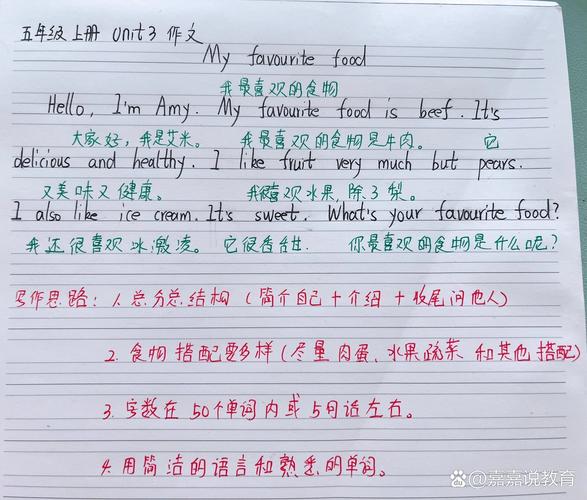 五年级上册 Unit 3 作文
My favourite food
我最喜欢的食物
Hello, I'm Amy. My favourite food is beef. It's
大家好，我是艾米。 我最喜欢的食物是牛肉。 它
delicious and healthy. I like fruit very much but pears.
又美味又健康。 我很喜欢水果，除了梨。
I also like ice cream. It's sweet. What's your favourite food?
我还很喜欢冰激凌。 它很香甜。 你最喜欢的食物是什么呢？
写作思路：1. 总分总结构（简介自己＋介绍＋收尾问他人）
2. 食物搭配要多样（尽量肉蛋、水果蔬菜和其他搭配）
3. 字数在50个单词内或5句话左右。
4. 用简洁的语言和熟悉的单词。
@嘉嘉说教育